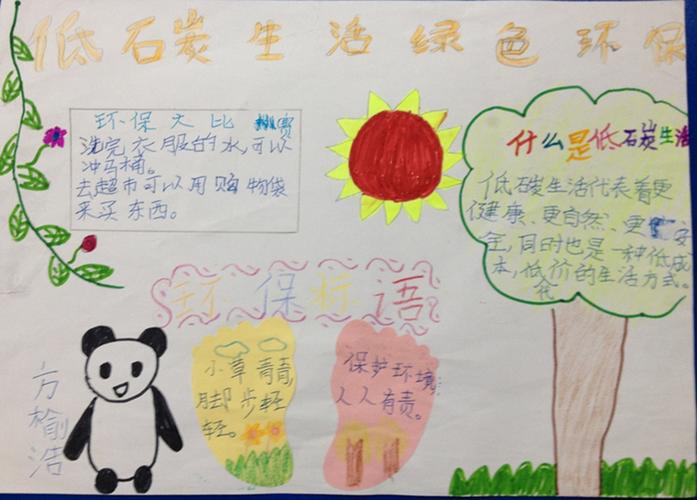 低碳生活绿色环保
环保大比
洗完衣服的水,可以
冲马桶。
去超市可以用购物袋
来买东西。
什么是低碳生活
低碳生活代表着更
健康、更自然、更安
全,同时也是一种低成
本,低代价的生活方式。
环保标语
小草青青,
脚步轻
轻。
保护环境,
人人有责。
方榆浩